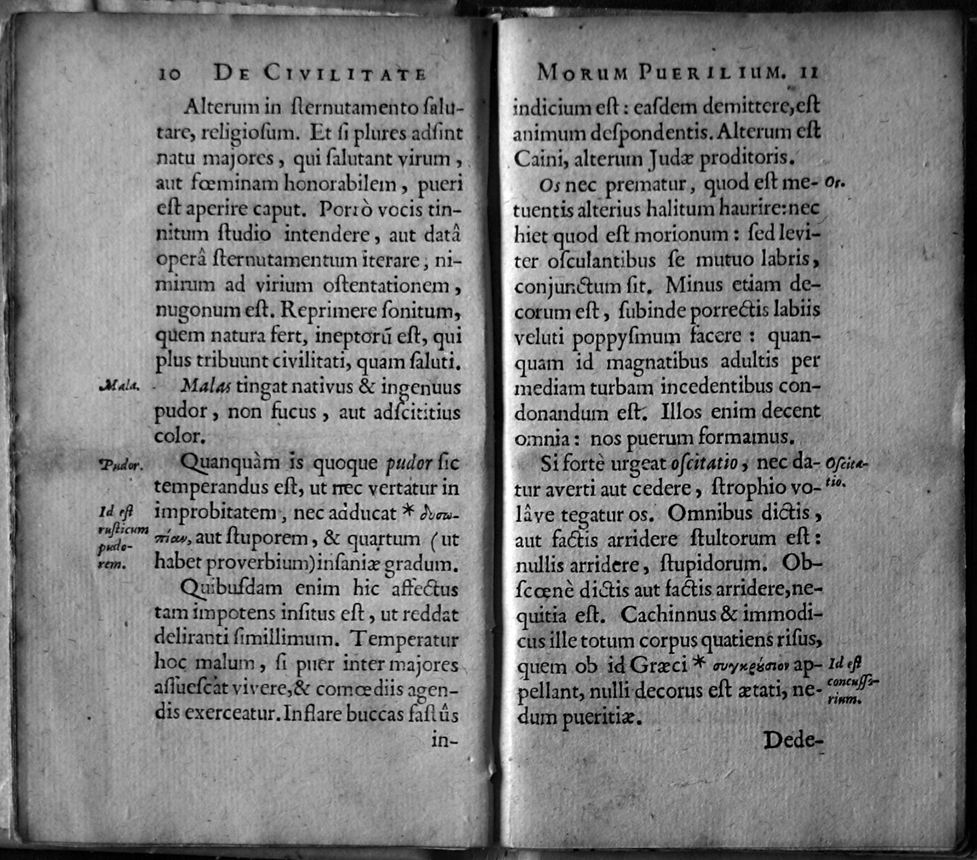 10 DE CIVILITATE
Alterum in ſternutamento ſalu-
tare, religioſum. Et ſi plures adſint
natu majores, qui ſalutant virum,
aut fœminam honorabilem, pueri
eſt aperire caput. Porrò vocis tin-
nitum ſtudio intendere, aut datâ
operâ ſternutamentum iterare, ni-
mirum ad virium oſtentationem,
nugonum eſt. Reprimere ſonitum,
quem natura fert, ineptorũ eſt, qui
plus tribuunt civilitati, quam ſaluti.
Mala.
Malas tingat nativus & ingenuus
pudor, non fucus, aut adſcititius
color.
Pudor.
Quanquàm is quoque pudor ſic
temperandus eſt, ut nec vertatur in
Id eſt
improbitatem, nec adducat * δυσω-
ruſticum
πίαν, aut ſtuporem, & quartum (ut
pudo-
rem.
habet proverbium) inſaniæ gradum.
Quibuſdam enim hic affectus
tam impotens inſitus eſt, ut reddat
deliranti ſimillimum. Temperatur
hoc malum, ſi puer inter majores
aſſueſcat vivere, & comœdiis agen-
dis exerceatur. Inflare buccas faſtûs
in-
MORUM PUERILIUM. 11
indicium eſt: eaſdem demittere, eſt
animum deſpondentis. Alterum eſt
Caini, alterum Judæ proditoris.
Os nec prematur, quod eſt me-
Os.
tuentis alterius halitum haurire: nec
hiet quod eſt morionum: ſed levi-
ter oſculantibus ſe mutuo labris,
conjunctum ſit. Minus etiam de-
corum eſt, ſubinde porrectis labiis
veluti poppyſmum facere: quan-
quam id magnatibus adultis per
mediam turbam incedentibus con-
donandum eſt. Illos enim decent
omnia: nos puerum formamus.
Si fortè urgeat oſcitatio, nec da-
Oſcita-
tur averti aut cedere, ſtrophio vo-
tio.
lâve tegatur os. Omnibus dictis,
aut factis arridere ſtultorum eſt:
nullis arridere, ſtupidorum. Ob-
ſcœnè dictis aut factis arridere, ne-
quitia eſt. Cachinnus & immodi-
cus ille totum corpus quatiens riſus,
quem ob id Græci * συγκρύσιον ap-
Id eſt
pellant, nulli decorus eſt ætati, ne-
concuſſo-
rium.
dum pueritiæ.
Dede-